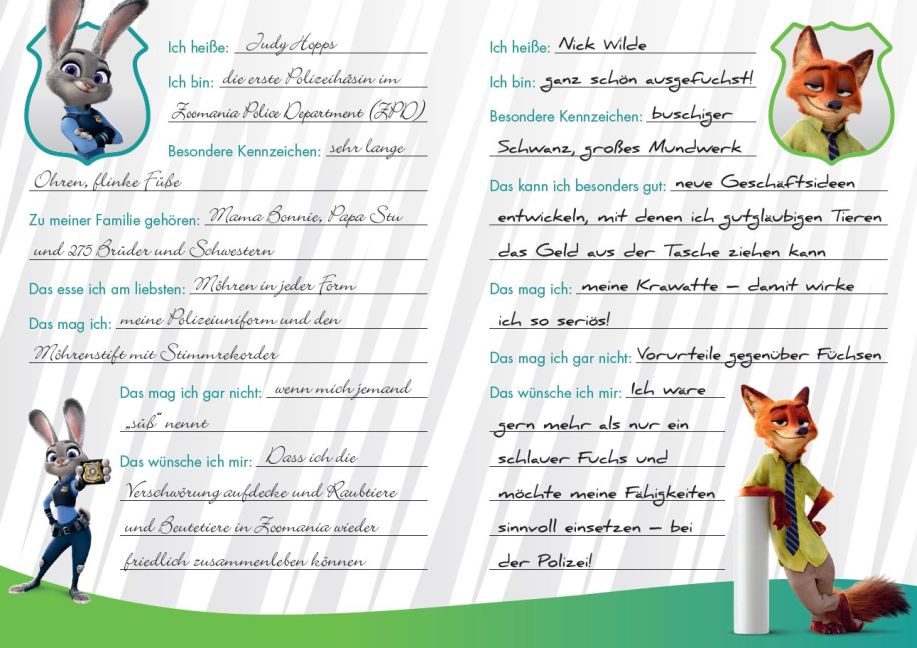 Ich heiße: Judy Hopps
Ich bin: die erste Polizeihäsin im
Zoomania Police Department (ZPD)
Besondere Kennzeichen: sehr lange
Ohren, flinke Füße
Zu meiner Familie gehören: Mama Bonnie, Papa Stu
und 275 Brüder und Schwestern
Das esse ich am liebsten: Möhren in jeder Form
Das mag ich: meine Polizeiuniform und den
Möhrenstift mit Stimmrekorder
Das mag ich gar nicht: wenn mich jemand
„süß“ nennt
Das wünsche ich mir: Dass ich die
Verschwörung aufdecke und Raubtiere
und Beutetiere in Zoomania wieder
friedlich zusammenleben können
Ich heiße: Nick Wilde
Ich bin: ganz schön ausgefuchst!
Besondere Kennzeichen: buschiger
Schwanz, großes Mundwerk
Das kann ich besonders gut: neue Geschäftsideen
entwickeln, mit denen ich gutgläubigen Tieren
das Geld aus der Tasche ziehen kann
Das mag ich: meine Krawatte – damit wirke
ich so seriös!
Das mag ich gar nicht: Vorurteile gegenüber Füchsen
Das wünsche ich mir: Ich wäre
gern mehr als nur ein
schlauer Fuchs und
möchte meine Fähigkeiten
sinnvoll einsetzen – bei
der Polizei!